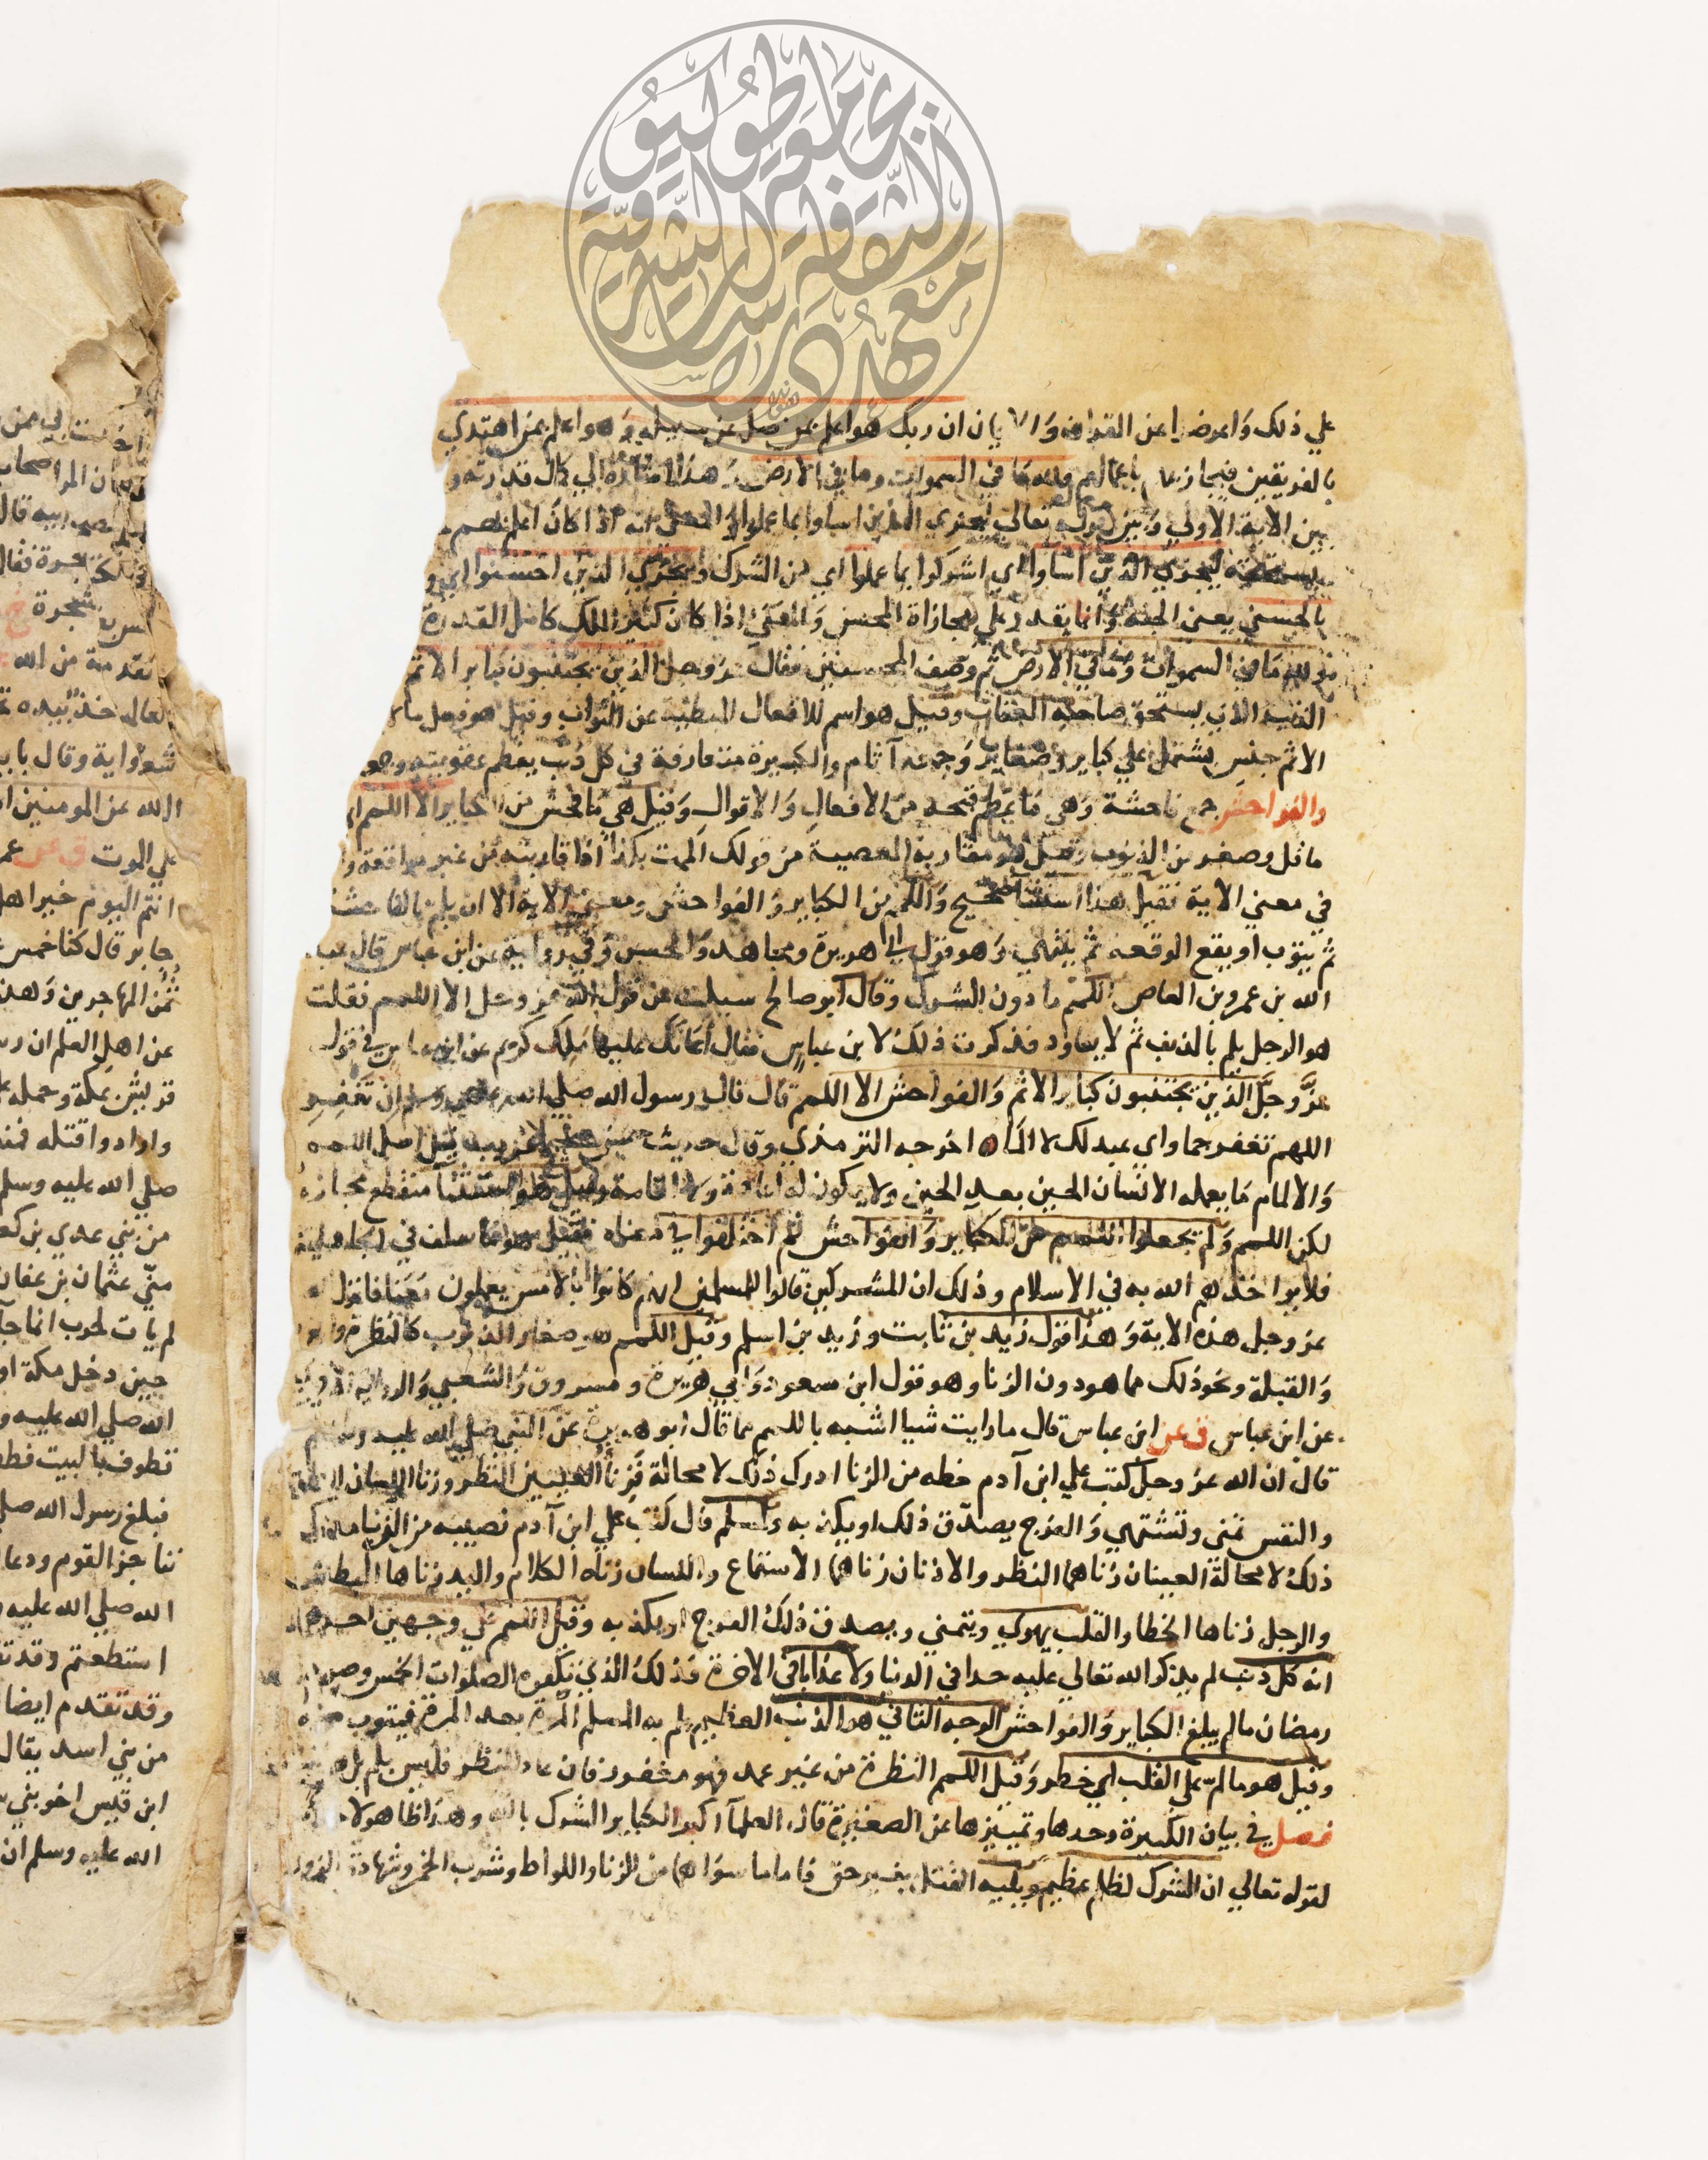 علي ذلك واعرضوا عن القران والايمان ان ربك هو اعلم بمن ضل عن سبيله وهو اعلم بمن اهتدي
بالفريقين فيجازيهما باعمالهم ولله ما في السموات وما في الارض وهذا اشارة الي كمال قدرته و
بين الاية الاولي وبين قوله تعالي ليجزي الذين اساوا بما عملوا والمعني انه اذا كان اعلم بهم
ليجزي الذين اساوا اي اشركوا بما عملوا اي من الشرك ويجزي الذين احسنوا اي و
بالحسني يعني الجنة وانما يقدر علي مجازاة المحسن والمسيء اذا كان كثير الملك كامل القدرة
ولله ما في السموات وما في الارض ثم وصف المحسنين فقال عز وجل الذين يجتنبون كباير الاثم
الذنب الذي يستحق صاحبه العقاب وقيل هو اسم للافعال المبطئة عن الثواب وقيل هو فعل ما
الاثم جنس يشتمل علي كباير وصغاير وجمعه آثام والكبيرة متعارفة في كل ذنب يعظم عقوبته وجمعه
والفواحش جمع فاحشة وهي ما عظم قبحه من الافعال والاقوال وقيل هي ما فحش من الكباير الا اللمم اي
ما قل وصغر من الذنوب وقيل هو مقاربة المعصية من قولك الممت بكذا اذا قاربته من غير مواقعة وا
في معني الاية فقيل هذا استثنا صحيح واللمم من الكباير والفواحش ومعني الاية الا ان يلم بالفاحشة
ثم يتوب او يقع الوقعة ثم ينتهي وهو قول ابي هريرة ومجاهد والحسن وفي رواية عن ابن عباس قال عبد
الله بن عمرو بن العاص اللمم ما دون الشرك وقال ابو صالح سيلت عن قول الله عز وجل الا اللمم فقلت
هو الرجل يلم بالذنب ثم لا يعاود فذكرت ذلك لابن عباس فقال اعانك عليها ملك كريم عن ابن عباس في قوله
عز وجل الذين يجتنبون كباير الاثم والفواحش الا اللمم قال قال رسول الله صلي الله عليه وسلم ان تغفر
اللهم تغفر جما واي عبد لك لا الما اخرجه الترمذي وقال حديث حسن صحيح غريب قيل اصل اللمم
والالمام ما يعمله الانسان الحين بعد الحين ولا يكون له اعادة ولا اقامة وقيل هو استثنا منقطع مجازه
لكن اللمم ولم يجعلوا اللمم من الكباير والفواحش ثم اختلفوا في معناه فقيل هو ما سلف في الجاهلية
فلا يواخذهم الله به في الاسلام وذلك ان المشركين قالوا للمسلمين انهم كانوا بالامس يعملون معنا فانزل
عز وجل هذه الاية وهذا قول زيد بن ثابت وزيد بن اسلم وقيل اللمم هو صغار الذنوب كالنظرة
والقبلة ونحو ذلك مما هو دون الزنا وهو قول ابن مسعود وابي هريرة ومسروق والشعبي والرواية الاخري
عن ابن عباس ق عن ابن عباس قال ما رايت شيا اشبه باللمم مما قال ابو هريرة عن النبي صلي الله عليه وسلم
قال ان الله عز وجل كتب علي ابن آدم حظه من الزنا ادرك ذلك لا محالة فزنا العينين النظر وزنا اللسان النطق
والنفس تمني وتشتهي والفرج يصدق ذلك او يكذبه ولمسلم قال كتب علي ابن آدم نصيبه من الزنا مدرك
ذلك لا محالة العينان زناهما النظر والاذنان زناهما الاستماع واللسان زناه الكلام واليد زناها البطش
والرجل زناها الخطا والقلب يهوي ويتمني ويصدق ذلك الفرج او يكذبه وقيل اللمم علي وجهين احدهما
انه كل ذنب لم يذكر الله تعالي عليه حدا في الدنيا ولا عذابا في الاخرة فذلك الذي تكفره الصلوات الخمس وصوم
رمضان ما لم يبلغ الكباير والفواحش الوجه الثاني هو الذنب العظيم يلم به المسلم المرة بعد المرة فيتوب منه
وقيل هو ما لم علي القلب اي خطر وقيل اللمم النظرة من غير عمد فهو مغفور فان عاد النظر فليس بلمم بل هو
فصل في بيان الكبيرة وحدها وتمييزها عن الصغيرة قال العلمآ اكبر الكباير الشرك بالله وهو ظاهر لا
لقوله تعالي ان الشرك لظلم عظيم ويليه القتل بغير حق فاما ما سواهما من الزنا واللواط وشرب الخمر وشهادة الزور
بشجرة
تقدمة من الله
تعالي خذ بيده
شعواية وقال
الله عن المومنين
علي الموت ق عن
انتم اليوم خير اهل
جابر قال كنا خمس
ثمن المهاجرين وهذ
عن اهل العلم ان ر
قريش بمكة وحمله
وارادوا قتله فمن
صلي الله عليه وسلم
من بني عدي بن كع
مني عثمان بن عفان
لم يات لحرب انما جا
حين دخل مكة او
الله صلي الله عليه و
تطوف بالبيت فط
فبلغ رسول الله صل
نناجز القوم ودعا
الله صلي الله عليه
استطعتم وقد تق
وقد تقدم ايضا
من بني اسد يقال
ابن قيس اخو بني
الله عليه وسلم ان
جامعة طوكيو
معهد دراسات الثقافة الشرقية